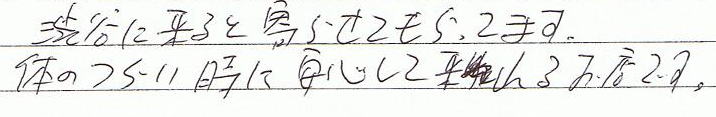 渋谷に来ると寄らせてもらってます。
体のつらい時に安心して来れるお店です。